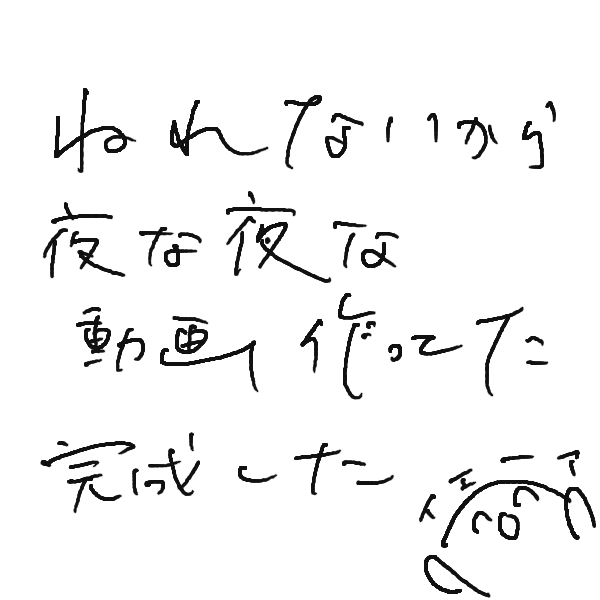 ねれないから
夜な夜な
動画作ってた
完成した
イエーイ